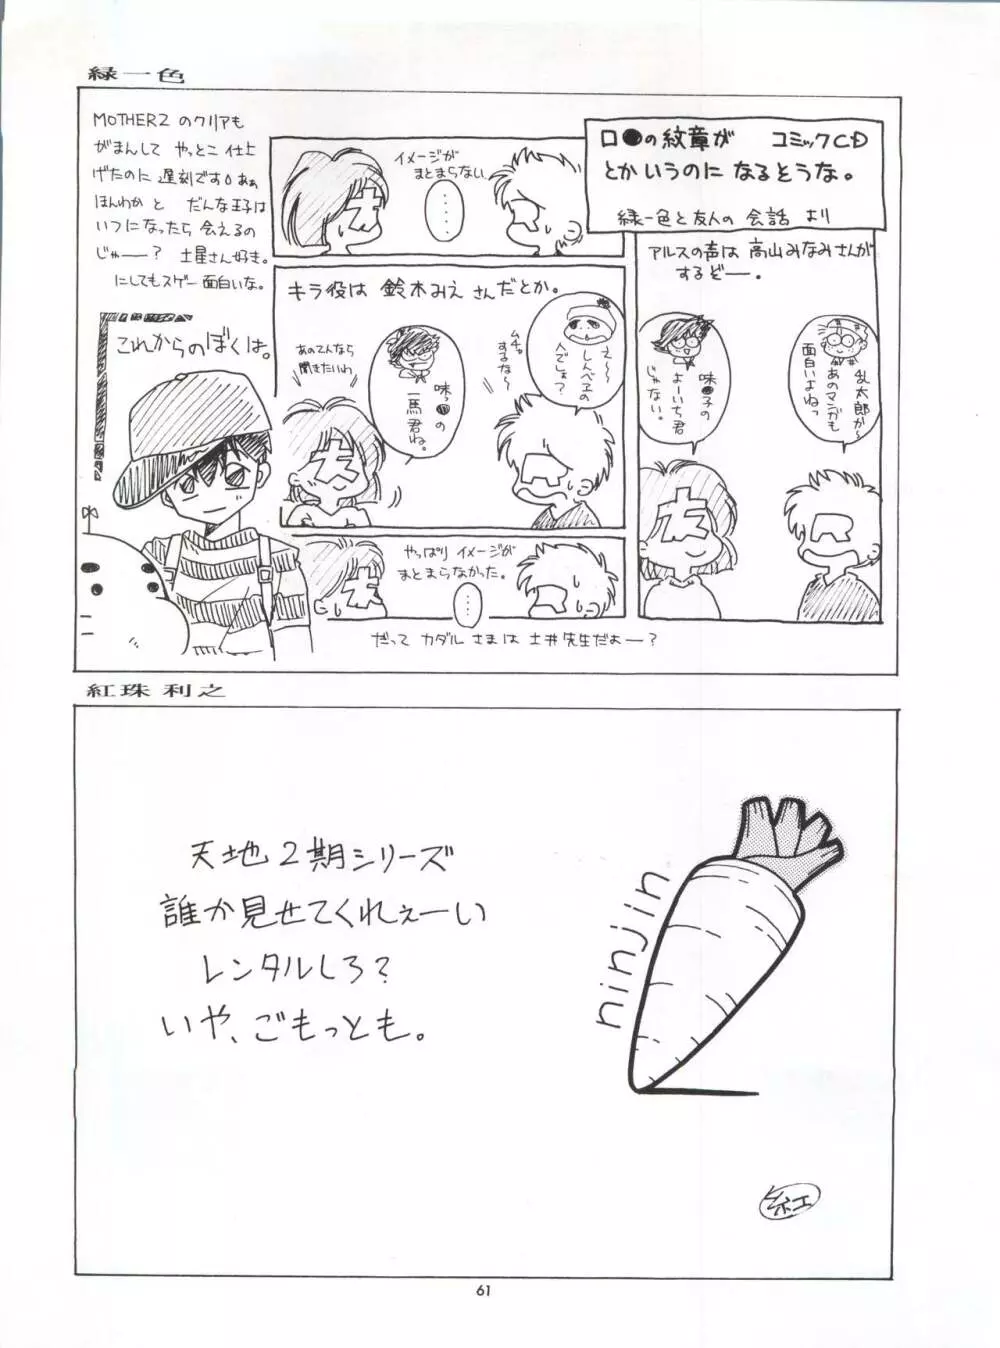 緑一色
MOTHER2のクリアも
がまんして やっとこ仕上
げたのに 遅刻です。あぁ
ほんわか と だんな王子は
いつになったら会えるの
じゃー? 土星さん好き。
にしてもスゲー面白いな。
これからのぼくは。
ロ●の紋章が コミックCD
とかいうのに なるそうな。
緑一色と友人の会話 より
アルスの声は 高山みなみさんが
するぞー。
乱太郎か〜
あのマンガも
面白いよねっ
味●子の
よーいち君
じゃない。
友
R
キラ役は 鈴木みえ さんだとか。
え〜〜
しんべヱの
人でしょ?
ムチャ
するな〜
味っ●の
一馬君ね。
あのてんなら
聞きたいわ
友
R
イメージが
まとまらない
・・・・・
友
R
やっぱり イメージが
まとまらなかった。
・・・・
友
R
だって カダル さまは 土井先生だよー?
紅珠利之
天地2期シリーズ
誰か見せてくれぇーい
レンタルしろ?
いや、ごもっとも。
ninjin
紅
61